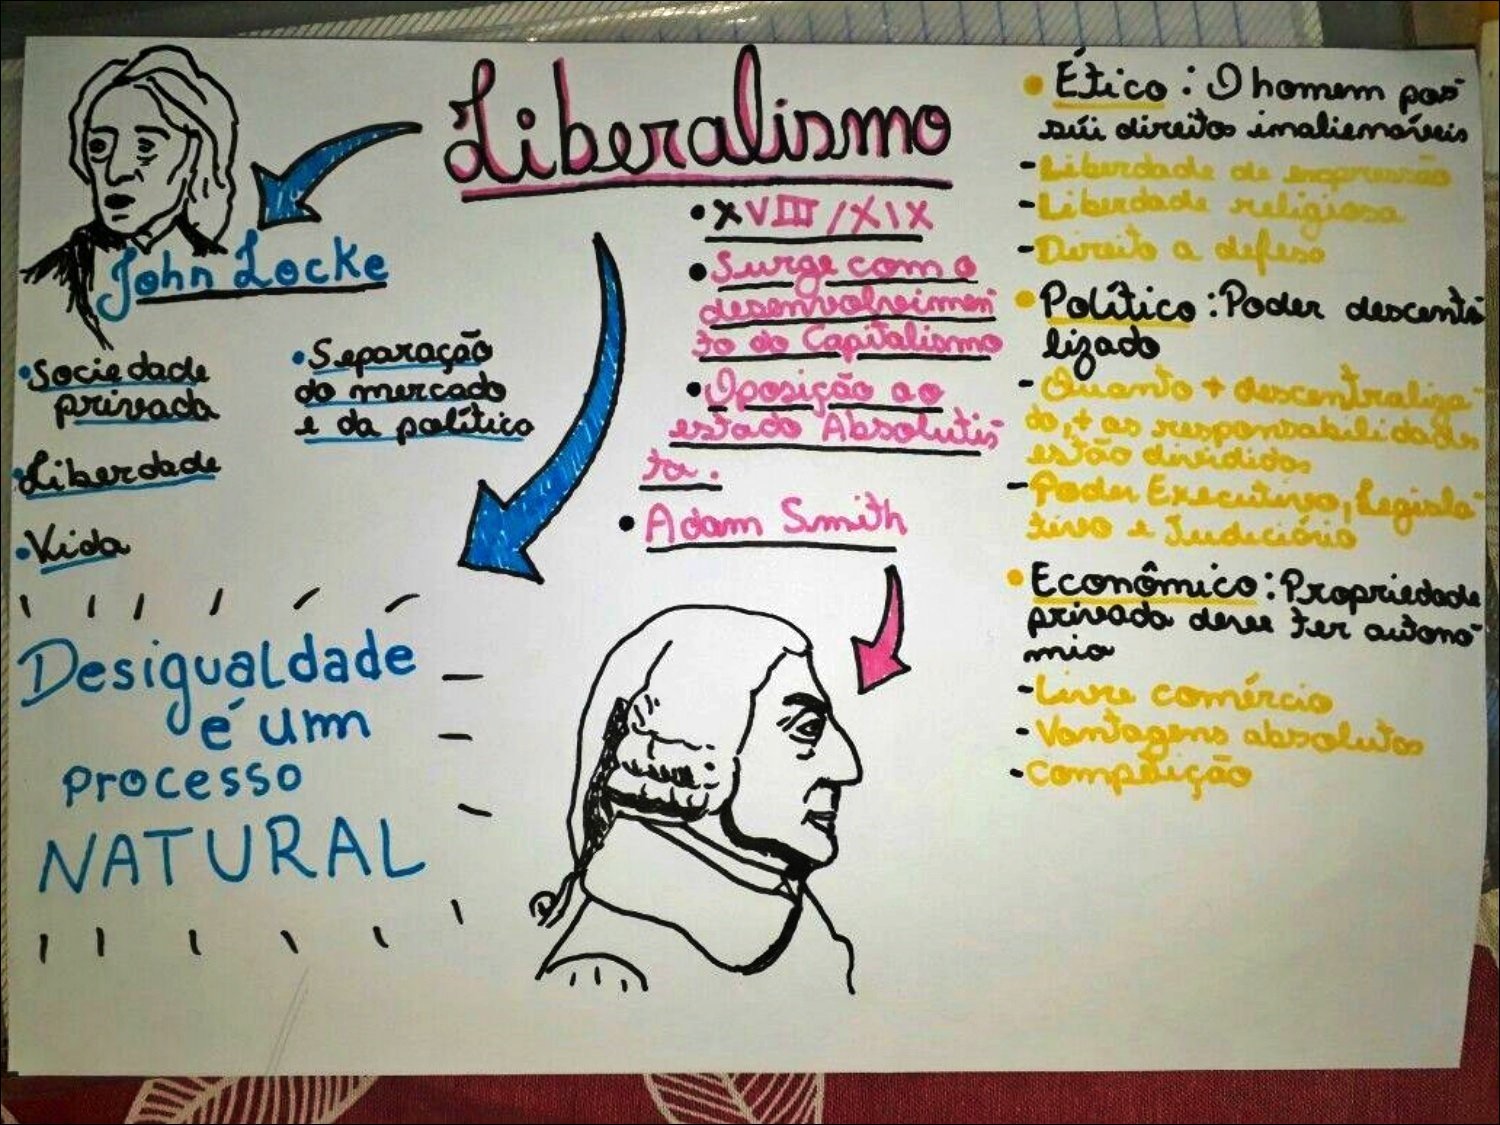 Liberalismo
John Locke
• Sociedade
privada
• Liberdade
• Vida
• Separação
do mercado
e da política
Desigualdade
é um
processo
NATURAL
• XVIII/XIX
• Surge com o
desenvolvimen-
to do Capitalismo
• Oposição ao
estado Absolutis-
ta.
• Adam Smith
• Ético: O homem pos-
súi direitos inalienáveis
- Liberdade de expressão
- Liberdade religiosa
- Direito a defesa
• Político: Poder descentra-
lizado
- Quanto + descentraliza-
do, + as responsabilidades
estão divididas
- Poder Executivo, Legisla-
tivo e Judiciário
• Econômico: Propriedade
privada deve ter autono-
mia
- Livre comércio
- Vantagens absolutas
- Competição